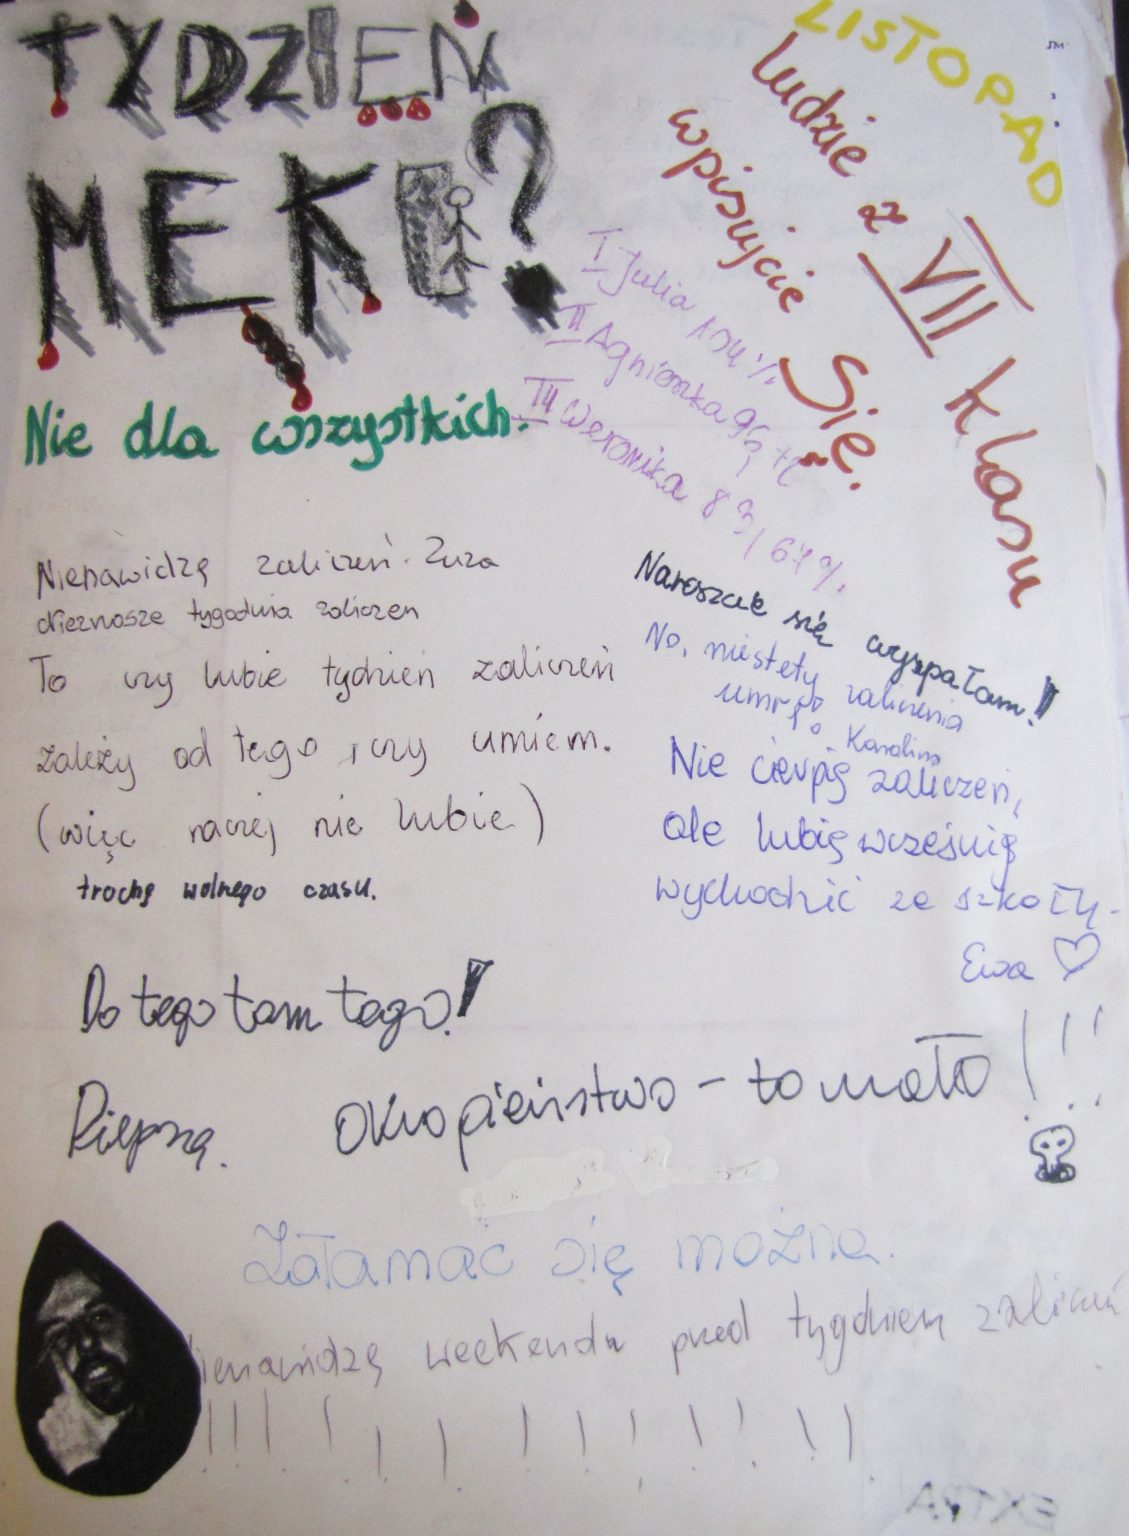 TYDZIEŃ
MĘKI?
Nie dla wszystkich.
LISTOPAD
ludzie z VII klasu
wpisujcie
Się.
I Julia 104%
II Agnieszka 95
III Weronika 83, 67%
Nienawidzę zaliczeń. Zuza
Nieznosze tygodnia zaliczen
To czy lubie tydzień zaliczeń
zależy od tego, czy umiem.
(więc raczej nie lubie)
trochę wolnego czasu.
Nareszcie się wyspałam!
No, niestety zaliczenia
umrę
Karolina
Nie cierpię zaliczeń,
ale lubię wcześnię
wychodzić ze szkoły.
Ewa ♡
Do tego tam tego!
Kiepsą.
okropieństwo - to mało !!!
Załamać się można.
ienawidzę weekendu przed tygodniem zaliczeń
!!! ! ! ! ! ! ! ! ! ! !
EXTRA